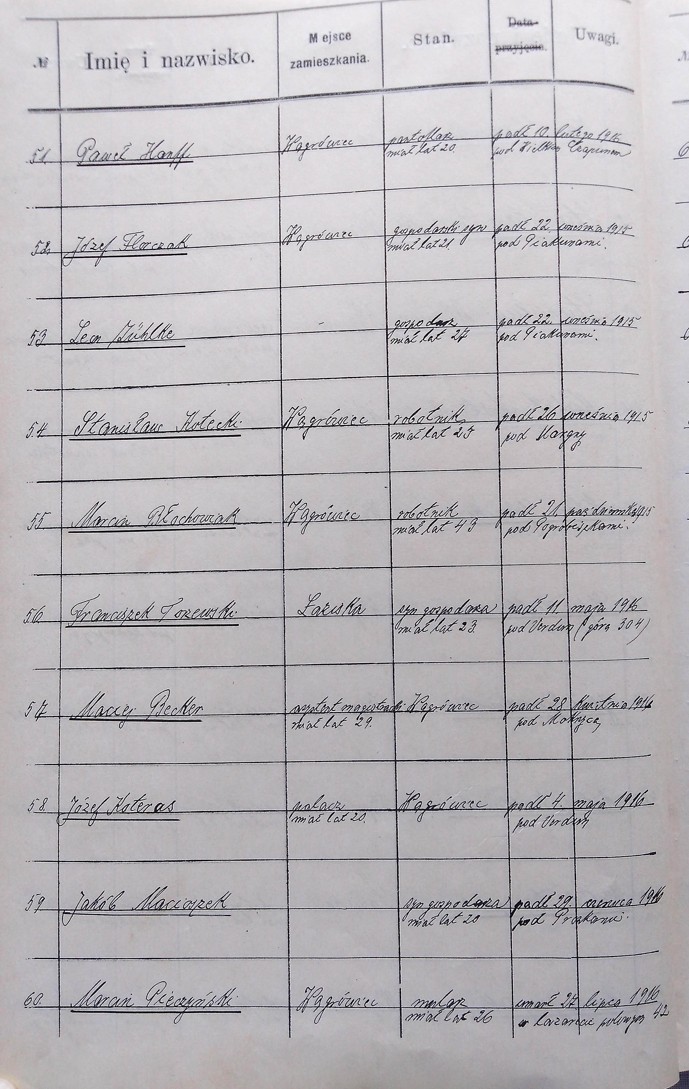 № Imię i nazwisko. Miejsce zamieszkania. Stan. Data przyjęcia. Uwagi.
51 Paweł Hanff Wągrówiec miał lat 20. padł 10. lutego 1916 pod
52. Józef Florczak Wągrówiec gospodarski syn miał lat 21. padł 22. września 1915 pod Piaskunami.
53 Leon Zühlke - gospodarz miał lat 27 padł 22. września 1915 pod Piaskunami.
54 Stanisław Kotecki Wągrówiec robotnik miał lat 23 padł 26 września 1915 pod
55 Marcin Błochowiak Wągrówiec robotnik miał lat 43 padł 21. października 1915 pod
56 Franciszek Tozewski Łaziska syn gospodarza miał lat 23. padł 11 maja 1916 pod Verdun (góra 304)
57 Maciej Becker asystent magistracki miał lat 29. Wągrówiec padł 28 kwietnia 1916 pod
58. Józef Koteras palacz miał lat 20. Wągrówiec padł 4. maja 1916 pod Verdun
59 Jakób Maciaszek syn gospodarza miał lat 20 padł 29. czerwca 1916 pod
60. Marcin Pieczyński Wągrówiec malarz miał lat 26 umarł 27 lipca 1916 w lazarecie polowym 42